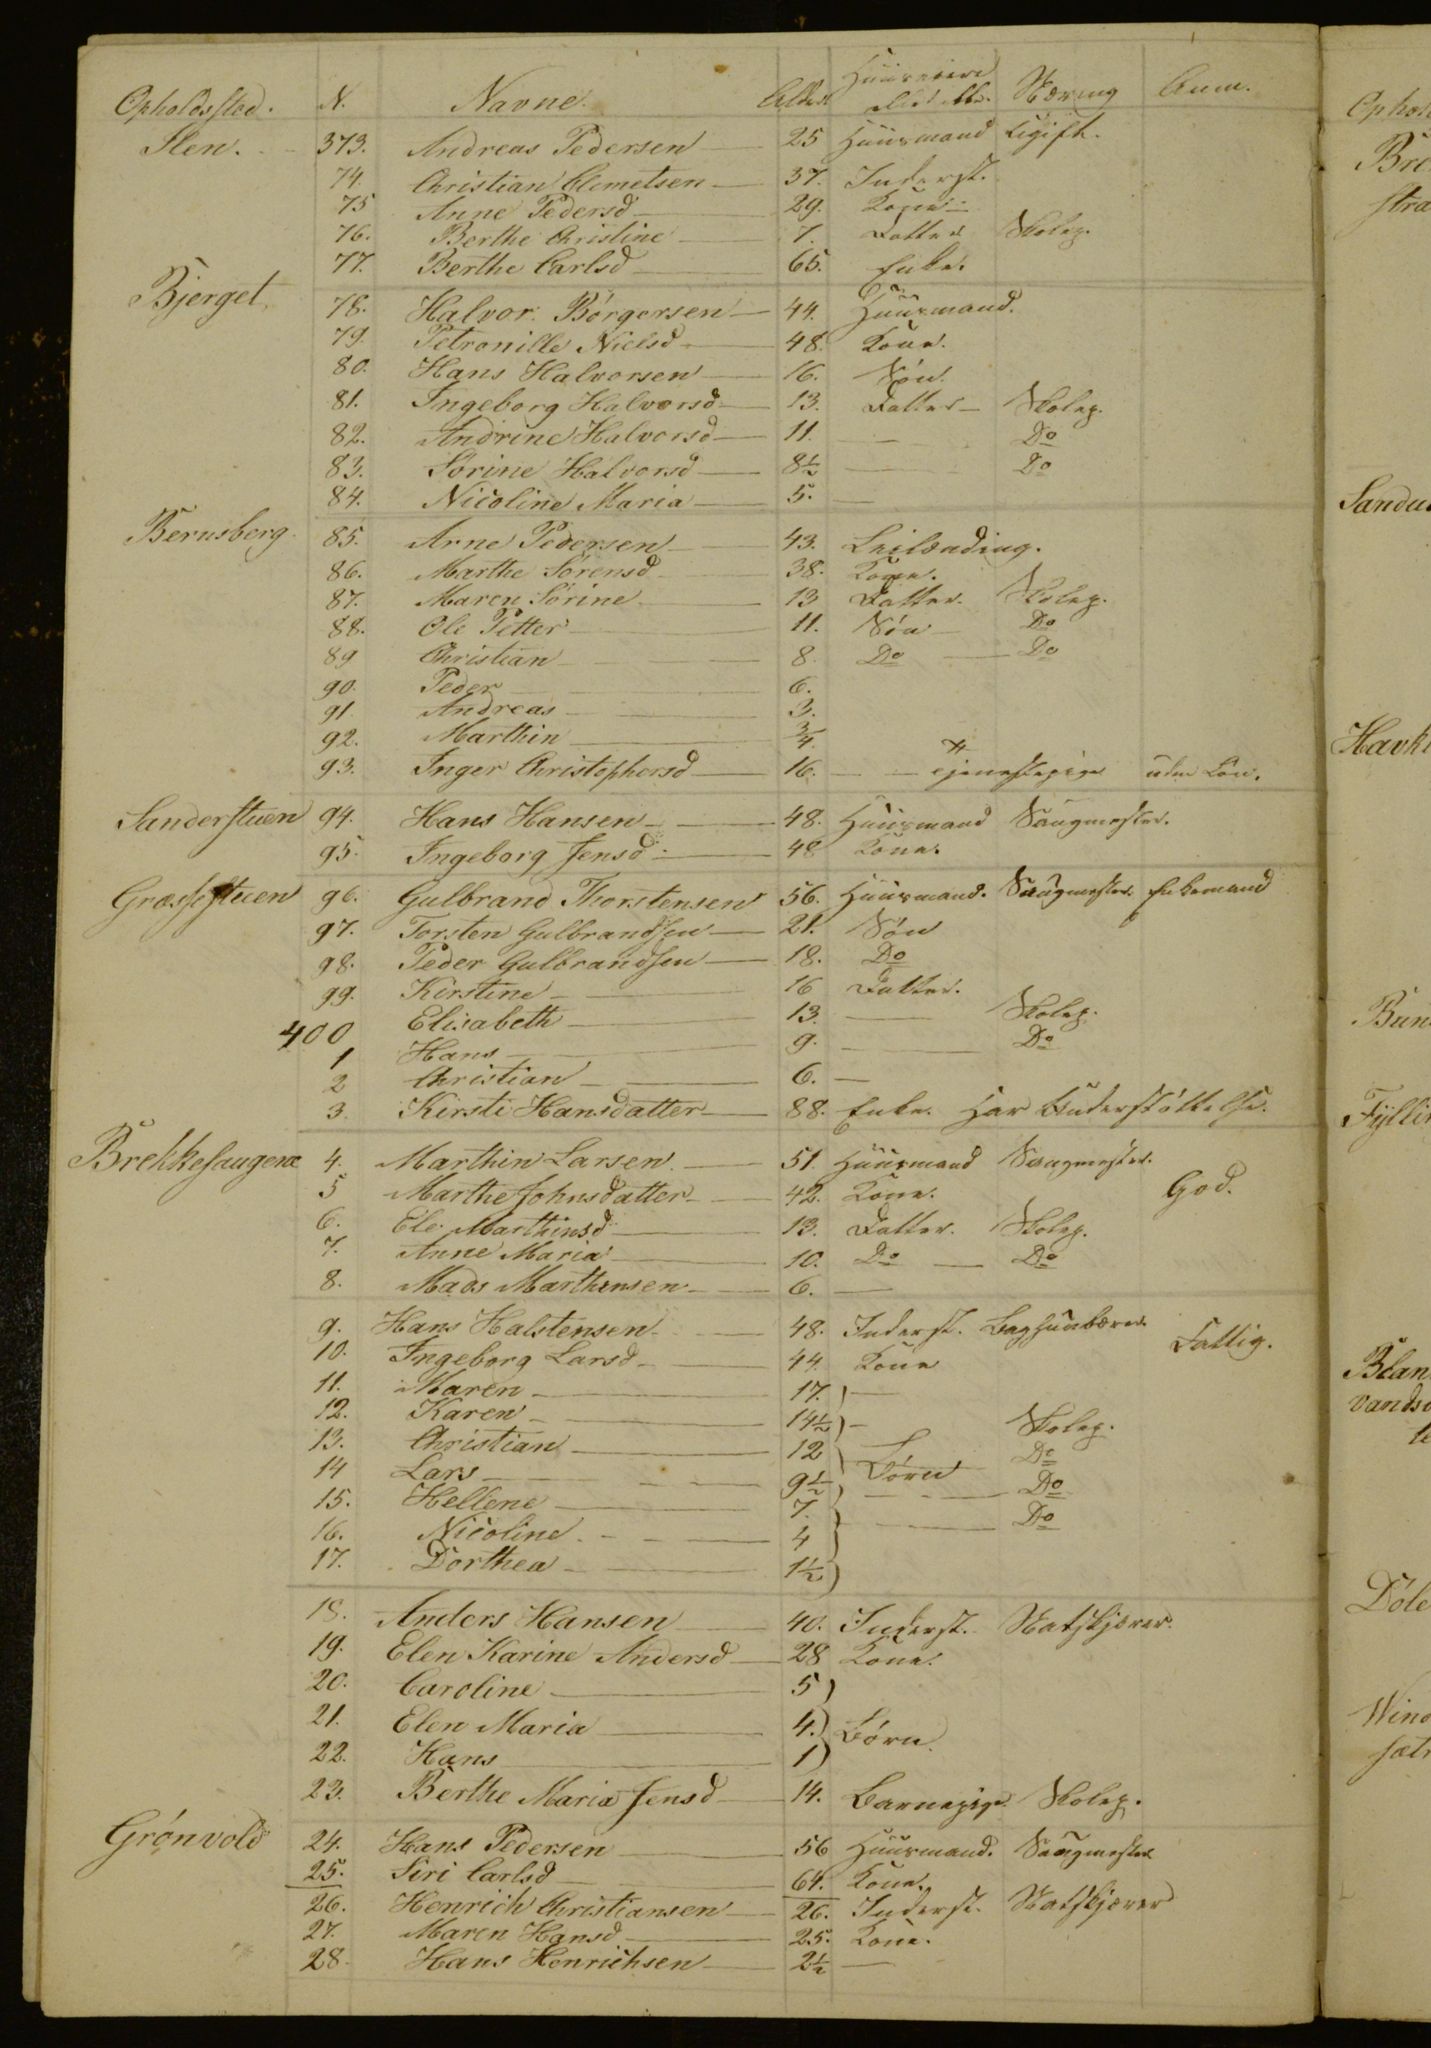 Opholdssted. N. Navne. Alder. Næring Anm.
Sten. 373. Andreas Pedersen 25 Huusmand Ugift.
74. Christian Clemetsen 37. Inderst.
75 Anne Pedersd 29. Kone
76. Berthe Christine 7. Datter Skoleg.
77. Berthe Carlsd 65. Enke.
Bjerget. 78. Halvor Børgersen 44. Huusmand.
79. Petronille Nielsd 48. Kone.
80. Hans Halvorsen 16. Søn.
81. Ingeborg Halvorsd 13. Datter Skoleg.
82. Andrine Halvorsd 11. Do
83. Sørine Halvorsd 8½ Do
84. Nicoline Maria 5.
Bernsberg. 85. Arne Pedersen 43. Leilænding.
86. Marthe Sørensd 38. Kone.
87. Maren Sørine 13 Datter. Skoleg.
88. Ole Petter 11. Søn Do
89 Christian 8. Do Do
90. Peder 6.
91. Andreas 3.
92. Marthin ¾
93. Inger Christophersd 16. Tjenestepige uden Løn.
Sanderstuen 94. Hans Hansen 48. Huusmand Saugmester.
95. Ingeborg Jensd 48 Kone.
Græssestuen 96. Gulbrand Thorstensen 56. Huusmand. Saugmester. Enkemand
97. Torsten Gulbrandsen 21. Søn
98. Peder Gulbrandsen 18. Do
99. Kirstine 16 Datter.
400 Elisabeth 13. Skoleg.
1 Hans 9. Do
2 Christian 6.
3. Kirsti Hansdatter 88. Enke. Har Understøttelse.
Brekkesaugene 4. Marthin Larsen 51. Huusmand Saugmester.
5 Marthe Johnsdatter 42. Kone. God.
6. Ele Marthinsd 13. Datter. Skoleg.
7. Anne Maria 10. Do Do
8. Mads Marthinsen 6.
9. Hans Halstensen 48. Inderst. Baghunbærer
10. Ingeborg Larsd 44. Kone Fattig.
11. Maren 17.
12. Karen 14½ Skoleg.
13. Christian 12 Børn Do
14 Lars 9½ Do
15. Hellene 7. Do
16. Nicoline 4
17. Dorthea 1½
18. Anders Hansen 40. Inderst. Natskjærer.
19. Elen Karine Andersd 28 Kone.
20. Caroline 5
21. Elen Maria 4. Børn.
22. Hans 1
23. Berthe Maria Jensd 14. Barnepige Skoleg.
Grønvold 24. Hans Pedersen 56 Huusmand. Saugmester
25. Siri Carlsd 64. Kone.
26. Henrich Christiansen 26. Inderst. Natskjærer
27. Maren Hansd 25. Kone.
28. Hans Henrichsen 2½